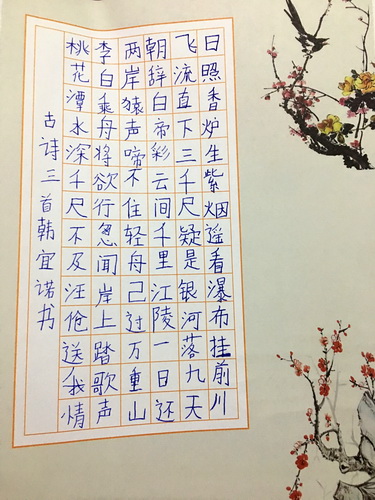 日照香炉生紫烟遥看瀑布挂前川
飞流直下三千尺疑是银河落九天
朝辞白帝彩云间千里江陵一日还
两岸猿声啼不住轻舟已过万重山
李白乘舟将欲行忽闻岸上踏歌声
桃花潭水深千尺不及汪伦送我情
古诗三首韩宜诺书